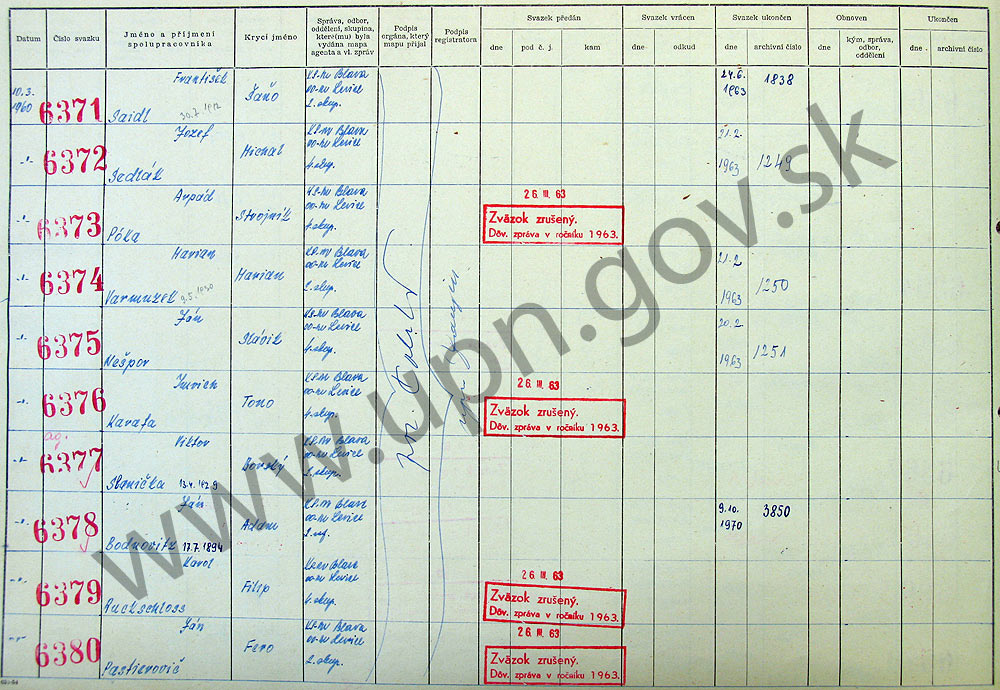 Datum
Číslo svazku
Jméno a příjmení spolupracovníka
Krycí jméno
Správa, odbor, oddělení, skupina, které(mu) byla vydána mapa agenta a vl. zpráv
Podpis orgána, který mapu přijal
Podpis registratora
Svazek předán
dne
pod č. j.
kam
Svazek vrácen
dne
odkud
Svazek ukončen
dne
archivní číslo
Obnoven
dne
kým, správa, odbor, oddělení
Ukončen
dne
archivní číslo
10.3. 1960 6371 František Saidl 30.7.1912 Šaňo KS-MV Blava
oo-MV Levice
2. skup.
24.6. 1963 1838
-"- 6372 Jozef Sedlák Michal KS-MV Blava
oo-MV Levice
4. skup.
21.2. 1963 1249
-"- 6373 Arpád Póka Strojník KS-MV Blava
oo-MV Levice
4. skup.
26. III. 63
Zväzok zrušený.
Dôv. zpráva v ročníku 1963.
-"- 6374 Marian Varmuzek 2.5.1930 Marian KS-MV Blava
oo-MV Levice
2. skup.
21.2 1963 1250
-"- 6375 Ján Nešpor Slávik KS-MV Blava
oo-MV Levice
4. skup.
20.2. 1963 1251
-"- 6376 Imrich Karafa Tono KS-MV Blava
oo-MV Levice
4. skup.
26. III. 63
Zväzok zrušený.
Dôv. zpráva v ročníku 1963.
ag.
-"- 6377 Viktor Stanička Borský KS-MV Blava
oo-MV Levice
2. skup.
-"- 6378 Ján Bodnovitz 17.7.1894 Adam KS-MV Blava
oo-MV Levice
9.10. 1970 3850
-"- 6379 Karol Ruckschloss Filip KS-MV Blava
oo-MV Levice
4. skup.
26. III. 63
Zväzok zrušený.
Dôv. zpráva v ročníku 1963.
-"- 6380 Ján Pastierovič Fero KS-MV Blava
oo-MV Levice
2. skup.
26. III. 63
Zväzok zrušený.
Dôv. zpráva v ročníku 1963.
www.upn.gov.sk